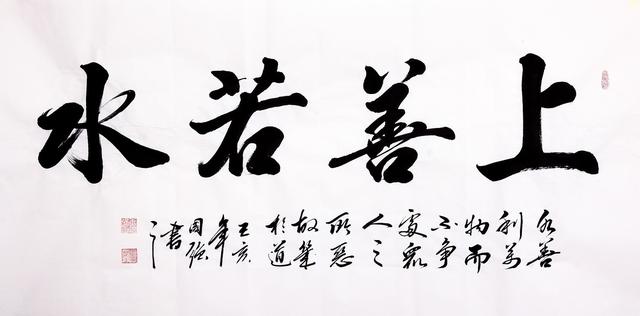 上善若水
水善
利萬
物而
不争
處眾
人之
所惡
故幾
於道
己亥
年
國強
書